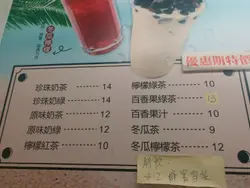 優惠期特價
珍珠奶茶 14
珍珠奶綠 14
原味奶茶 12
原味奶綠 12
檸檬紅茶 10
檸檬綠茶 10
百香果綠茶 13
百香果汁 10
冬瓜茶 9
冬瓜檸檬茶 12